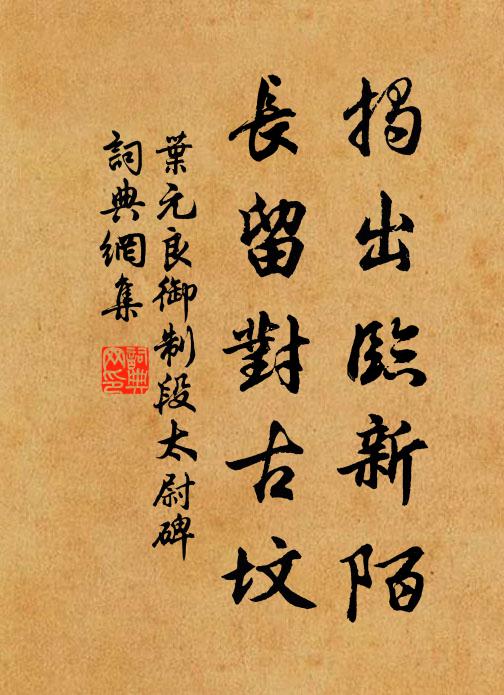 揭出臨新陌
長留對古墳
葉元良御制段太尉碑
詞典網集
詞典網印